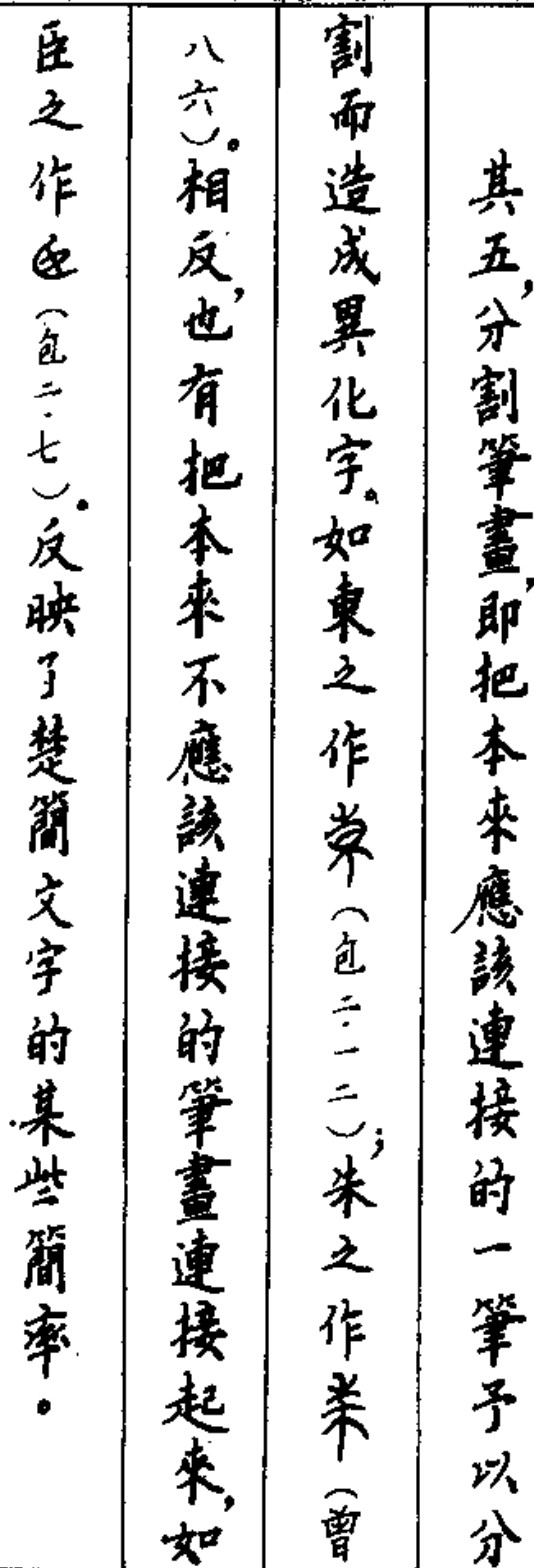 其五，分割筆畫，即把本來應該連接的一筆予以分
割而造成異化字。如東之作（包二·一二）；朱之作（曾
八六）。相反，也有把本來不應該連接的筆畫連接起來，如
臣之作（包二·七）。反映了楚簡文字的某些簡率。